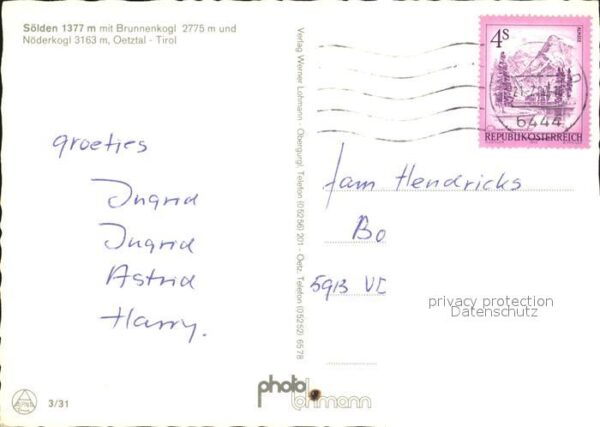 Sölden 1377 m mit Brunnenkogl 2775 m und
Nöderkogl 3163 m, Oetztal - Tirol
groetjes
Ingrid
Ingrid
Astrid
Harry.
3/31
Verlag Werner Lohmann - Obergurgl, Telefon (05256) 201 - Oetz, Telefon (05252) 6578
photo
lohmann
4S
REPUBLIK ÖSTERREICH
6444
fam Hendricks
Bo
5913 VE
privacy protection
Datenschutz